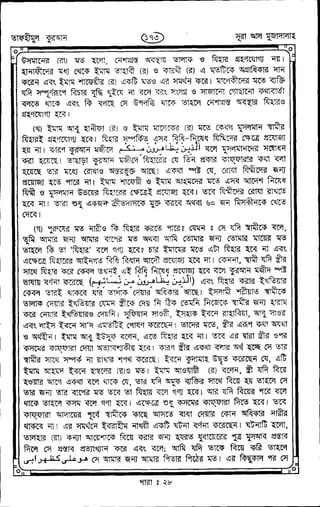 তাফহীমুল কুরআন
১৭৩
সূরা আল মুজাদালাহ
উসমানের (রা) মত হলো, নেশাগ্রস্ত অবস্থায় তালাক ও যিহার গ্রহণযোগ্য নয়।
হানাফীদের মধ্য থেকে ইমাম তাহাবী (র) ও কারখী (র) এ মতটিকে অগ্রাধিকার দান
করেন এবং ইমাম শাফেয়ীর (র) একটি মতও এর সমর্থন করে। মালেকীদের মতে ব্যক্তি
যদি সম্পূর্ণরূপে বিচার বুদ্ধি খুইয়ে না বসে বরং সংলগ্ন ও সাজানো গোছানো কথাবার্তা
বলতে থাকে এবং কি বলছে সে উপলব্ধি থাকে তাহলে নেশাগ্রস্ত অবস্থার যিহারও
গ্রহণযোগ্য হবে।
(ঘ) ইমাম আবু হানীফা (র) ও ইমাম মালেকের (র) মতে কেবল মুসলমান স্বামীর
যিহারই গ্রহণযোগ্য হবে। যিহার সম্পর্কিত এসব বিধি-নিষেধ যিম্মীদের ক্ষেত্রে প্রযোজ্য
হয় না। কারণ কুরআন মজীদে الذين يظاهرون منكم বলে মুসলমানদের সম্বোধন
করা হয়েছে। তাছাড়া কুরআন মজীদে যিহারের যে তিন প্রকার কাফ্ফারার কথা বলা
হয়েছে তার মধ্যে রোযাও অন্তর্ভুক্ত আছে। একথা স্পষ্ট যে, রোযা যিম্মীদের জন্য
প্রযোজ্য হতে পারে না। ইমাম শাফেয়ী ও ইমাম আহমাদের মতে এসব আদেশ নিষেধ
যিম্মী ও মুসলমান উভয়ের যিহারের ক্ষেত্রেই প্রযোজ্য হবে। তবে যিম্মীদের রোযা রাখতে
হবে না। তারা শুধু একজন ক্রীতদাসকে মুক্ত করবে অথবা ৬০ জন মিসকীনকে খেতে
দেবে।
(ঙ) পুরুষের মত নারীও কি যিহার করতে পারে? যেমন ঃ সে যদি স্বামীকে বলে,
তুমি আমার জন্য আমার বাপের মত অথবা আমি তোমার জন্য তোমার মায়ের মত
তাহলে কি তা 'যিহার' বলে গণ্য হবে? চার ইমামের মতে এটা যিহার হবে না এবং
এক্ষেত্রে যিহারের আইনগত বিধি বিধান আদৌ প্রযোজ্য হবে না। কেননা, স্বামী যদি স্ত্রীর
সাথে যিহার করে কেবল তখনই এই বিধি নিষেধ প্রযোজ্য হবে বলে কুরআন মজীদ স্পষ্ট
ভাষায় বর্ণনা করেছে (الذين يظاهرون من نسائهم) এবং যিহার করার ইখতিয়ার
কেবল তারই থাকবে যার তালাক দেয়ার অধিকার আছে। ইসলামী শরীয়াত স্বামীকে
তালাক দেয়ার ইখতিয়ার যেমন স্ত্রীকে দেয় নি ঠিক তেমনি নিজেকে স্বামীর জন্য হারাম
করে নেয়ার ইখতিয়ারও দেয়নি। সুফিয়ান সাওরী, ইসহাক ইবনে রাহাবিয়া, আবু সাওর
এবং লাইস ইবনে সা'দ এমতটিই পোষণ করেছেন। তাদের মতে, স্ত্রীর এরূপ কথা অযথা
ও অর্থহীন। ইমাম আবু ইউসূফ বলেন, এতে যিহার হবে না। তবে এর দ্বারা স্ত্রীর ওপর
কসমের কাফ্ফারা দেয়া অত্যাবশ্যকীয় হবে। কারণ স্ত্রীর একথা বলার অর্থ হচ্ছে সে তার
স্বামীর সাথে সম্পর্ক না রাখার শপথ করেছে। ইবনে কুদামাহ উদ্ধৃত করেছেন যে, এটি
ইমাম আহমদ ইবনে হাম্বলেরও (র) মত। ইমাম আওযায়ী (র) বলেন, স্ত্রী যদি বিয়ে
হওয়ার আগে একথা বলে থাকে যে, তার যদি অমুক ব্যক্তির সাথে বিয়ে হয় তাহলে সে
তার জন্য তার বাপের মত তবে তা যিহার বলে গণ্য হবে। আর যদি বিয়ের পরে বলে
থাকে তাহলে কসম বলে গণ্য হবে। এক্ষেত্রে শুধু কসমের কাফ্ফারা দিতে হবে। তবে
কাফ্ফারা আদায়ের পূর্বে স্বামীকে কাছে আসতে বাধা দেয়ার কোন অধিকার নারীর
থাকবে না। এর সমর্থনে ইবরাহীম নাখয়ী একটি ঘটনা বর্ণনা করেছেন। ঘটনাটি হলো,
তালহার (রা) কন্যা আয়েশাকে বিয়ে করার জন্য হযরত যুবায়েরের পুত্র মুসআব প্রস্তাব
দিলে সে প্রস্তাব প্রত্যাখ্যান করে এবং বলে; আমি যদি তাকে বিয়ে করি তাহলে
هو على كظهر ابى সে আমার জন্য আমার পিতার পিঠের মত। এর কিছুকাল পর সে
পারা ঃ ২৮